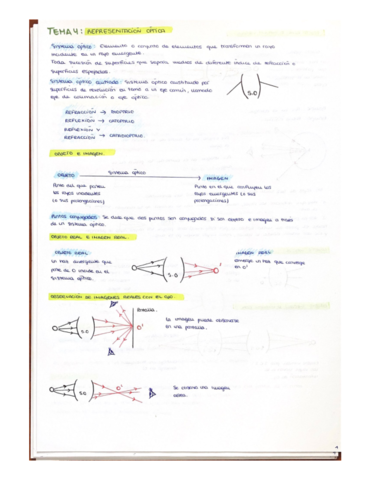 TEMA 4: REPRESENTACIÓN ÓPTICA
Sistema óptico: Elemento o conjunto de elementos que transforman un rayo
incidente en un rayo emergente.
Toda sucesión de superficies que separa medios de diferente índice de refracción o
superficies espejadas.
Sistema óptico centrado: Sistema óptico constituido por
superficies de revolución en torno a un eje común, llamado
eje de
S.O
REFRACCIÓN → DIÓPTRICO
REFLEXIÓN → CATÓPTRICO
REFLEXIÓN Y
REFRACCIÓN → CATADIÓPTRICO
OBJETO E IMAGEN
OBJETO
sistema óptico
IMAGEN
Punto del que parten
los rayos incidentes
(o sus prolongaciones)
Punto en el que confluyen los
rayos emergentes (o sus
prolongaciones)
Puntos conjugados: Se dice que dos puntos son conjugados si son objeto e imagen a través
de un sistema óptico.
OBJETO REAL E IMAGEN REAL
OBJETO REAL
un haz divergente que
parte de O incide en el
sistema óptico.
S.O
O'
IMAGEN REAL
emerge un haz que converge
en O'
OBSERVACIÓN DE IMÁGENES REALES CON EL OJO
S.O
O'
Pantalla
La imagen puede obtenerse
en una pantalla.
S.O
O'
Se observa una imagen
aérea.